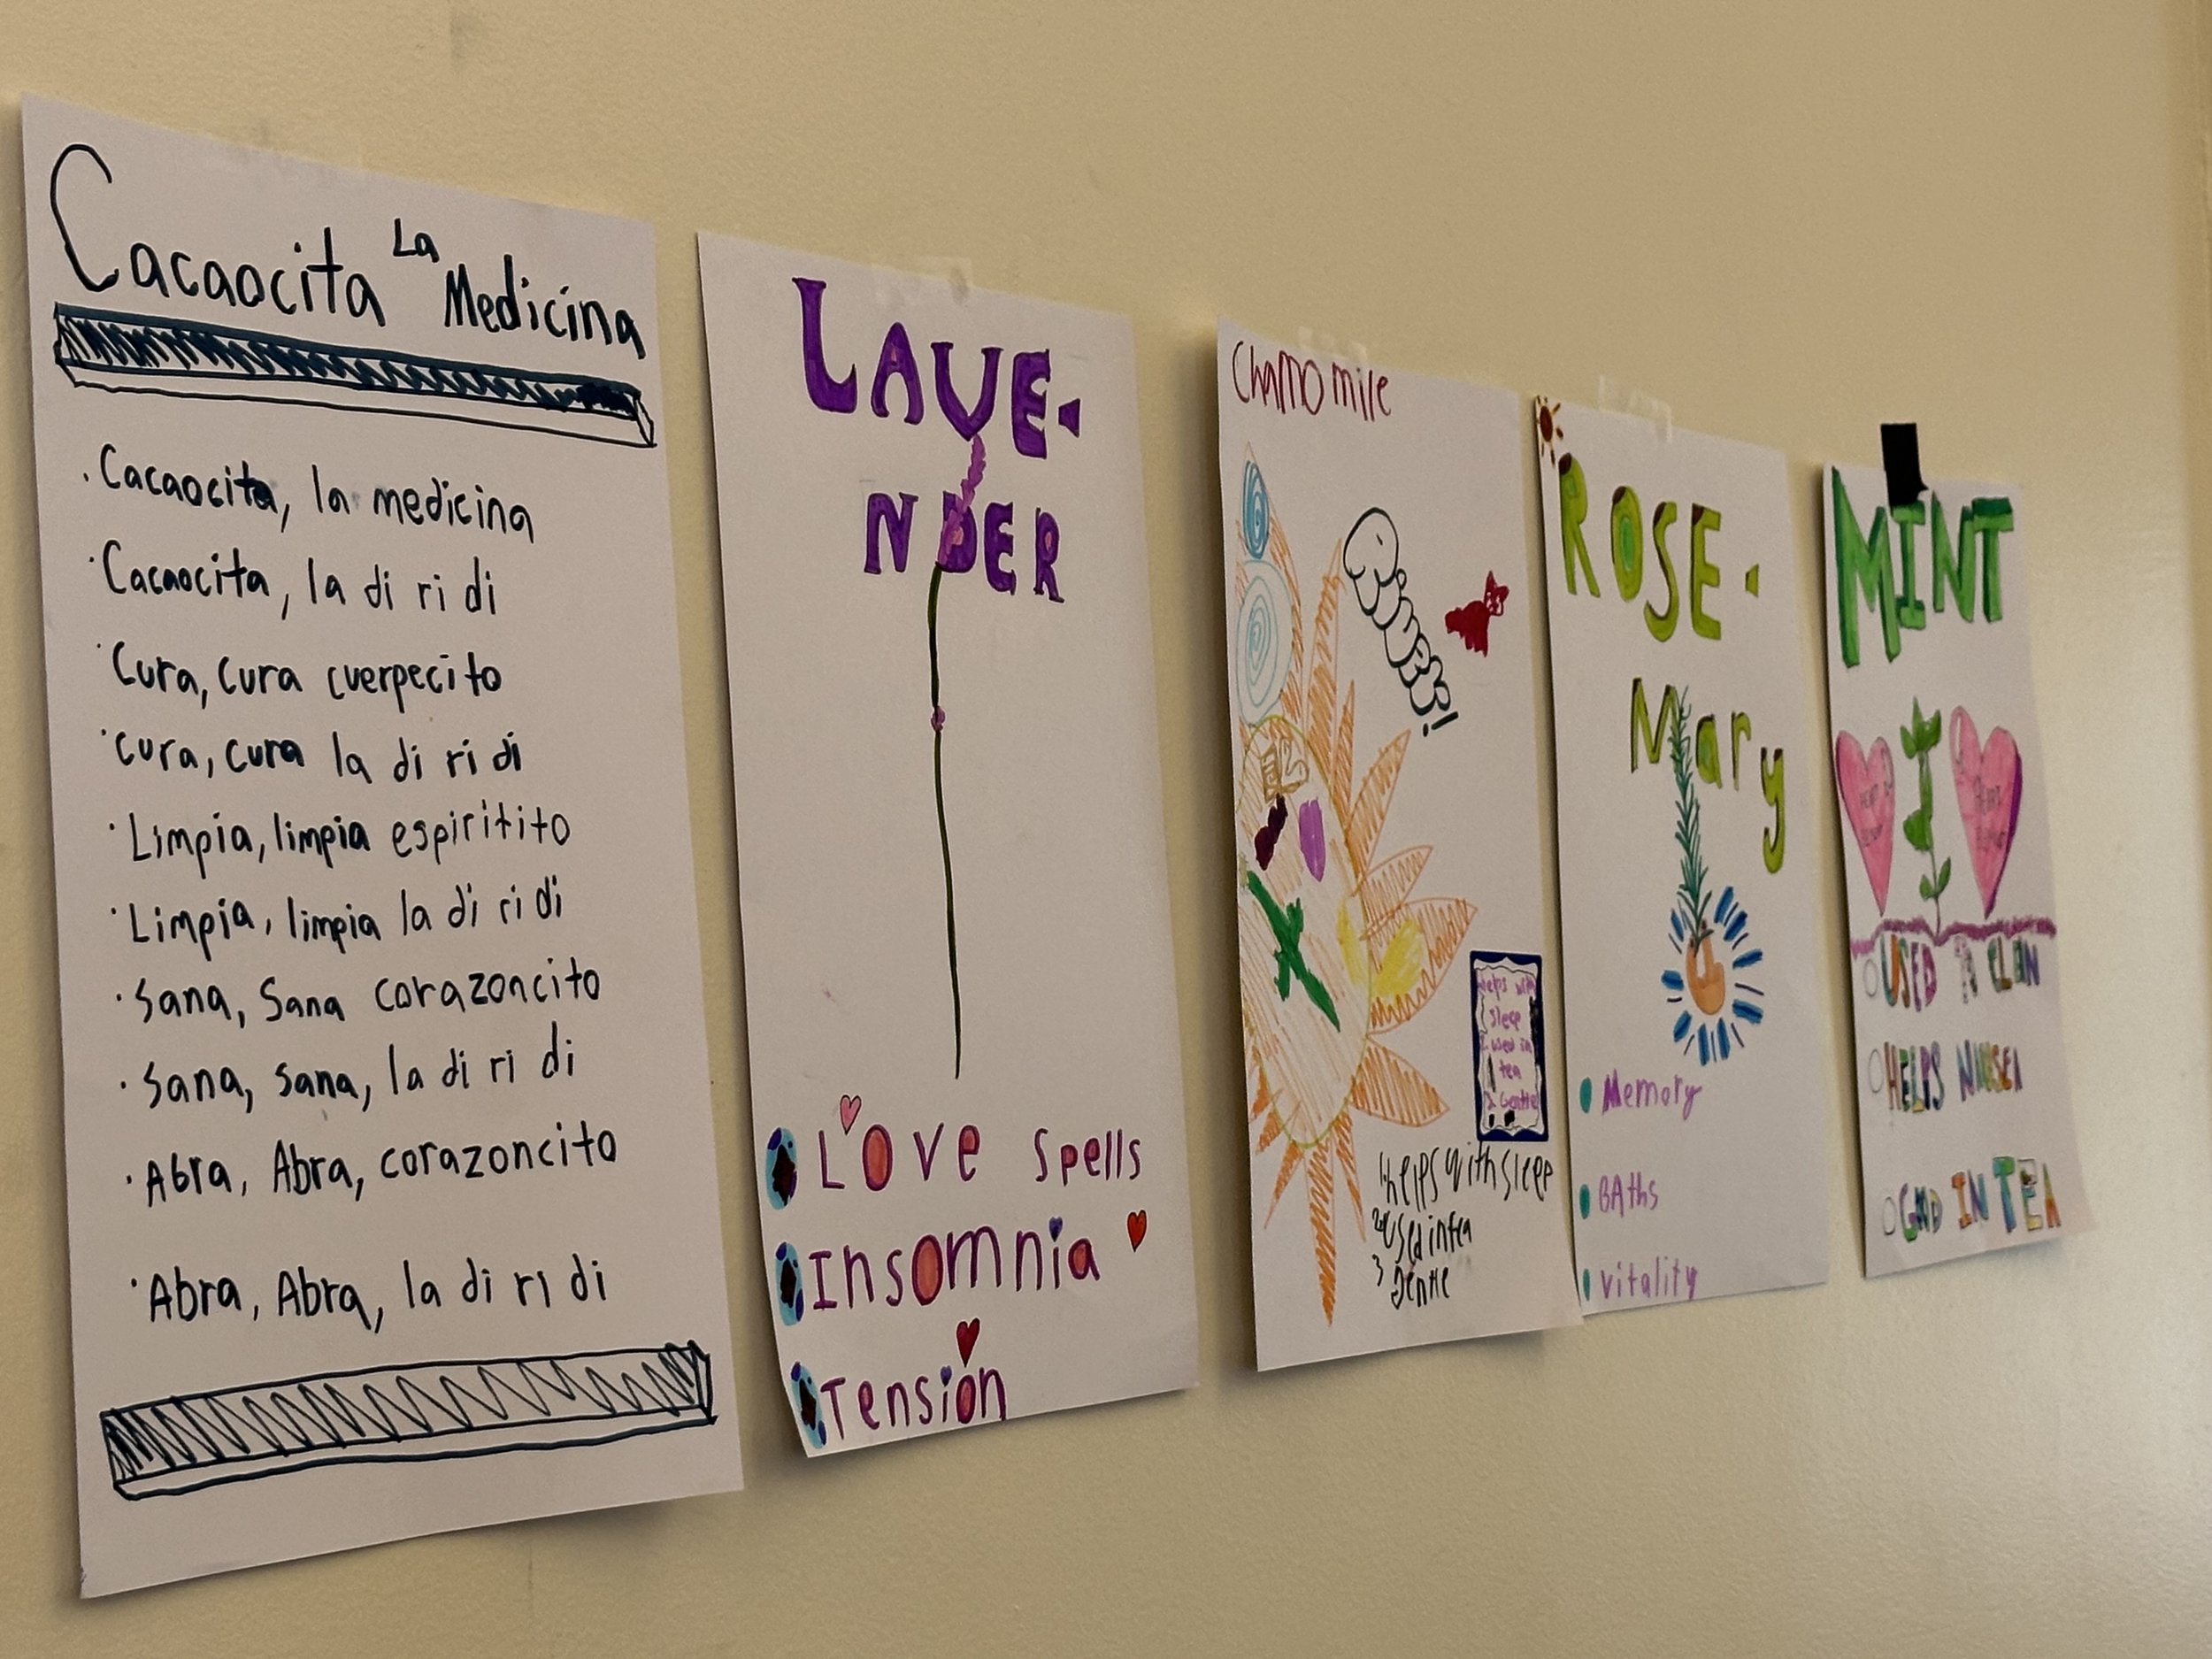 Cacaocita La Medicina
· Cacaocita, la medicina
· Cacaocita, la di ri di
· Cura, cura cuerpecito
· cura, cura la di ri di
· Limpia, limpia espiritito
· Limpia, limpia la di ri di
· Sana, Sana corazoncito
· Sana, sana, la di ri di
· Abra, Abra, corazoncito
· Abra, Abra, la di ri di
LAVE-
NDER
LOVE Spells
Insomnia
Tension
Chamomile
Helps with
sleep
2 used in
tea
3 Gentle
1 helps with sleep
2 Used in tea
3 Gentle
ROSE-
Mary
Memory
BAths
vitality
MINT
USED TO CLEAN
HELPS NAUSEA
GOOD IN TEA